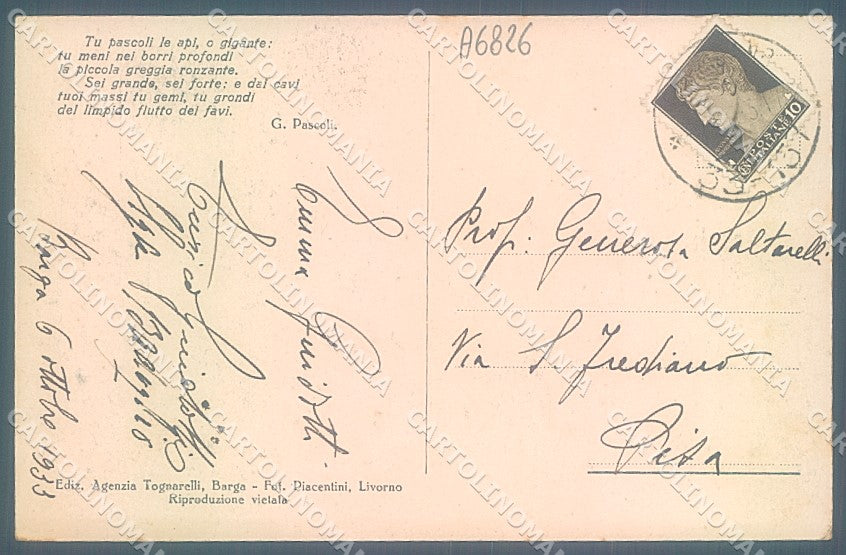 Tu pascoli le api, o gigante:
tu meni nei borri profondi
la piccola greggia ronzante.
Sei grande, sei forte; e dai cavi
tuoi massi tu gemi, tu grondi
del limpido flutto dei favi.
G. Pascoli.
Emma Guidotti
Enrica Guidotti
Barga 6 ottobre 1933
Ediz. Agenzia Tognarelli, Barga - Fot. Piacentini, Livorno
Riproduzione vietata
A6826
POSTE
ITALIANE
10
Prof. Generosa Saltarelli
Via S. Frediano
Pisa
CARTOLINOMANIA